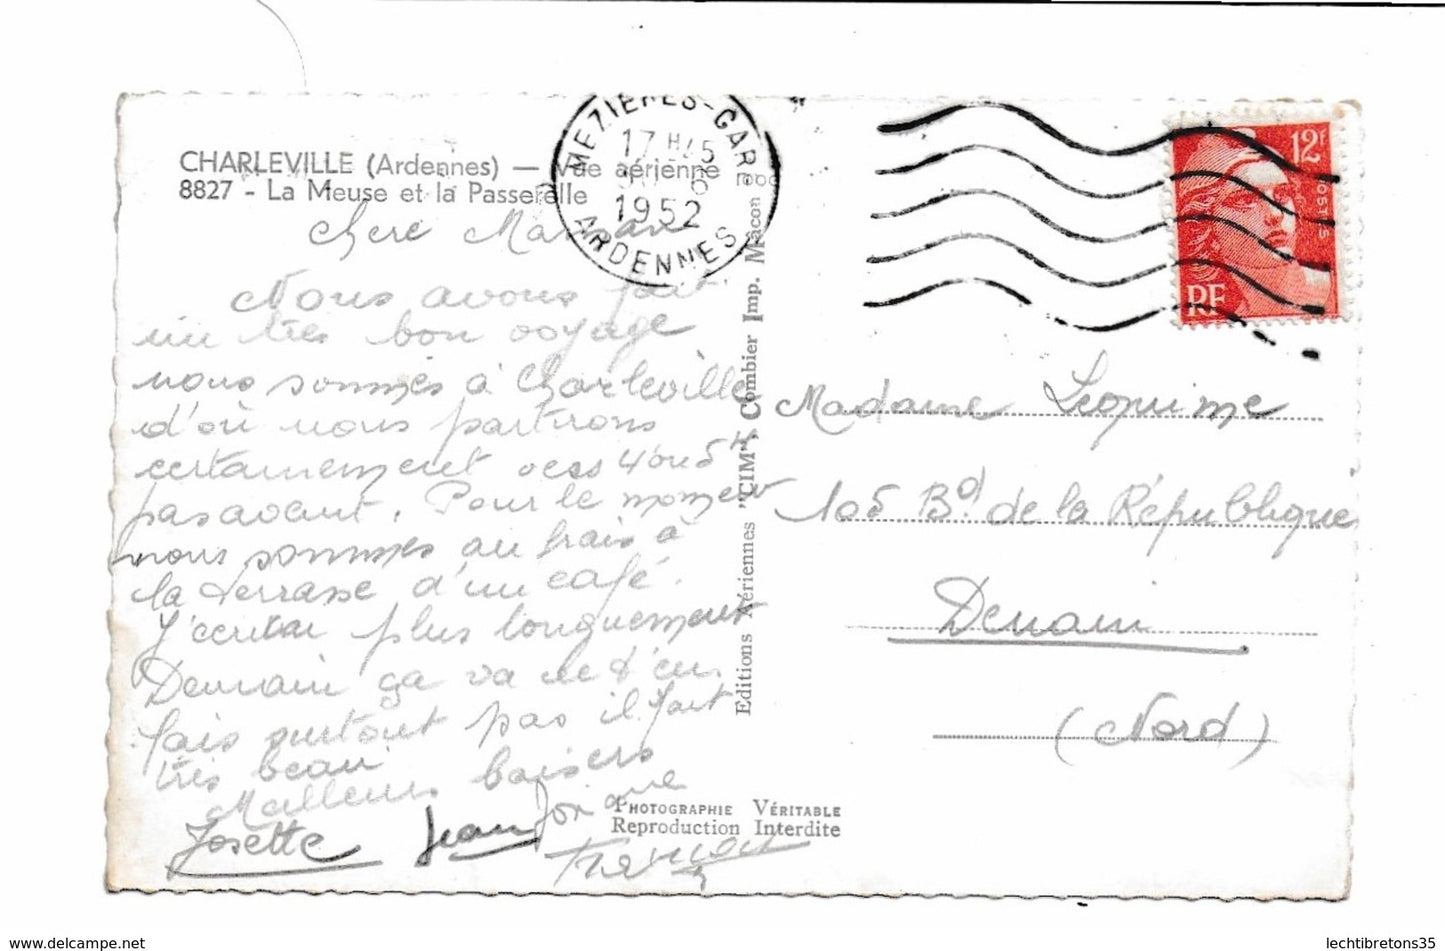 CHARLEVILLE (Ardennes) — Vue aérienne
8827 - La Meuse et la Passerelle
MEZIERES-GARE
17 H 45
6
1952
ARDENNES
12F
POSTES
RF
Chere Maman
Nous avons fait
un très bon voyage
nous sommes à Charleville
d'où nous partirons
certainement vers 4 ou 5 H
pas avant. Pour le moment
nous sommes au frais à
la terrasse d'un café.
J'écrirai plus longuement
Demain ça va ne t'en
fais surtout pas il fait
très beau
Meilleurs baisers
Josette Jean
Editions Aériennes "CIM", Combier Imp. Macon
Madame Lequime
105 Bd de la République
Denain
(Nord)
PHOTOGRAPHIE VÉRITABLE
Reproduction Interdite
delcampe.net
lechtibretons35